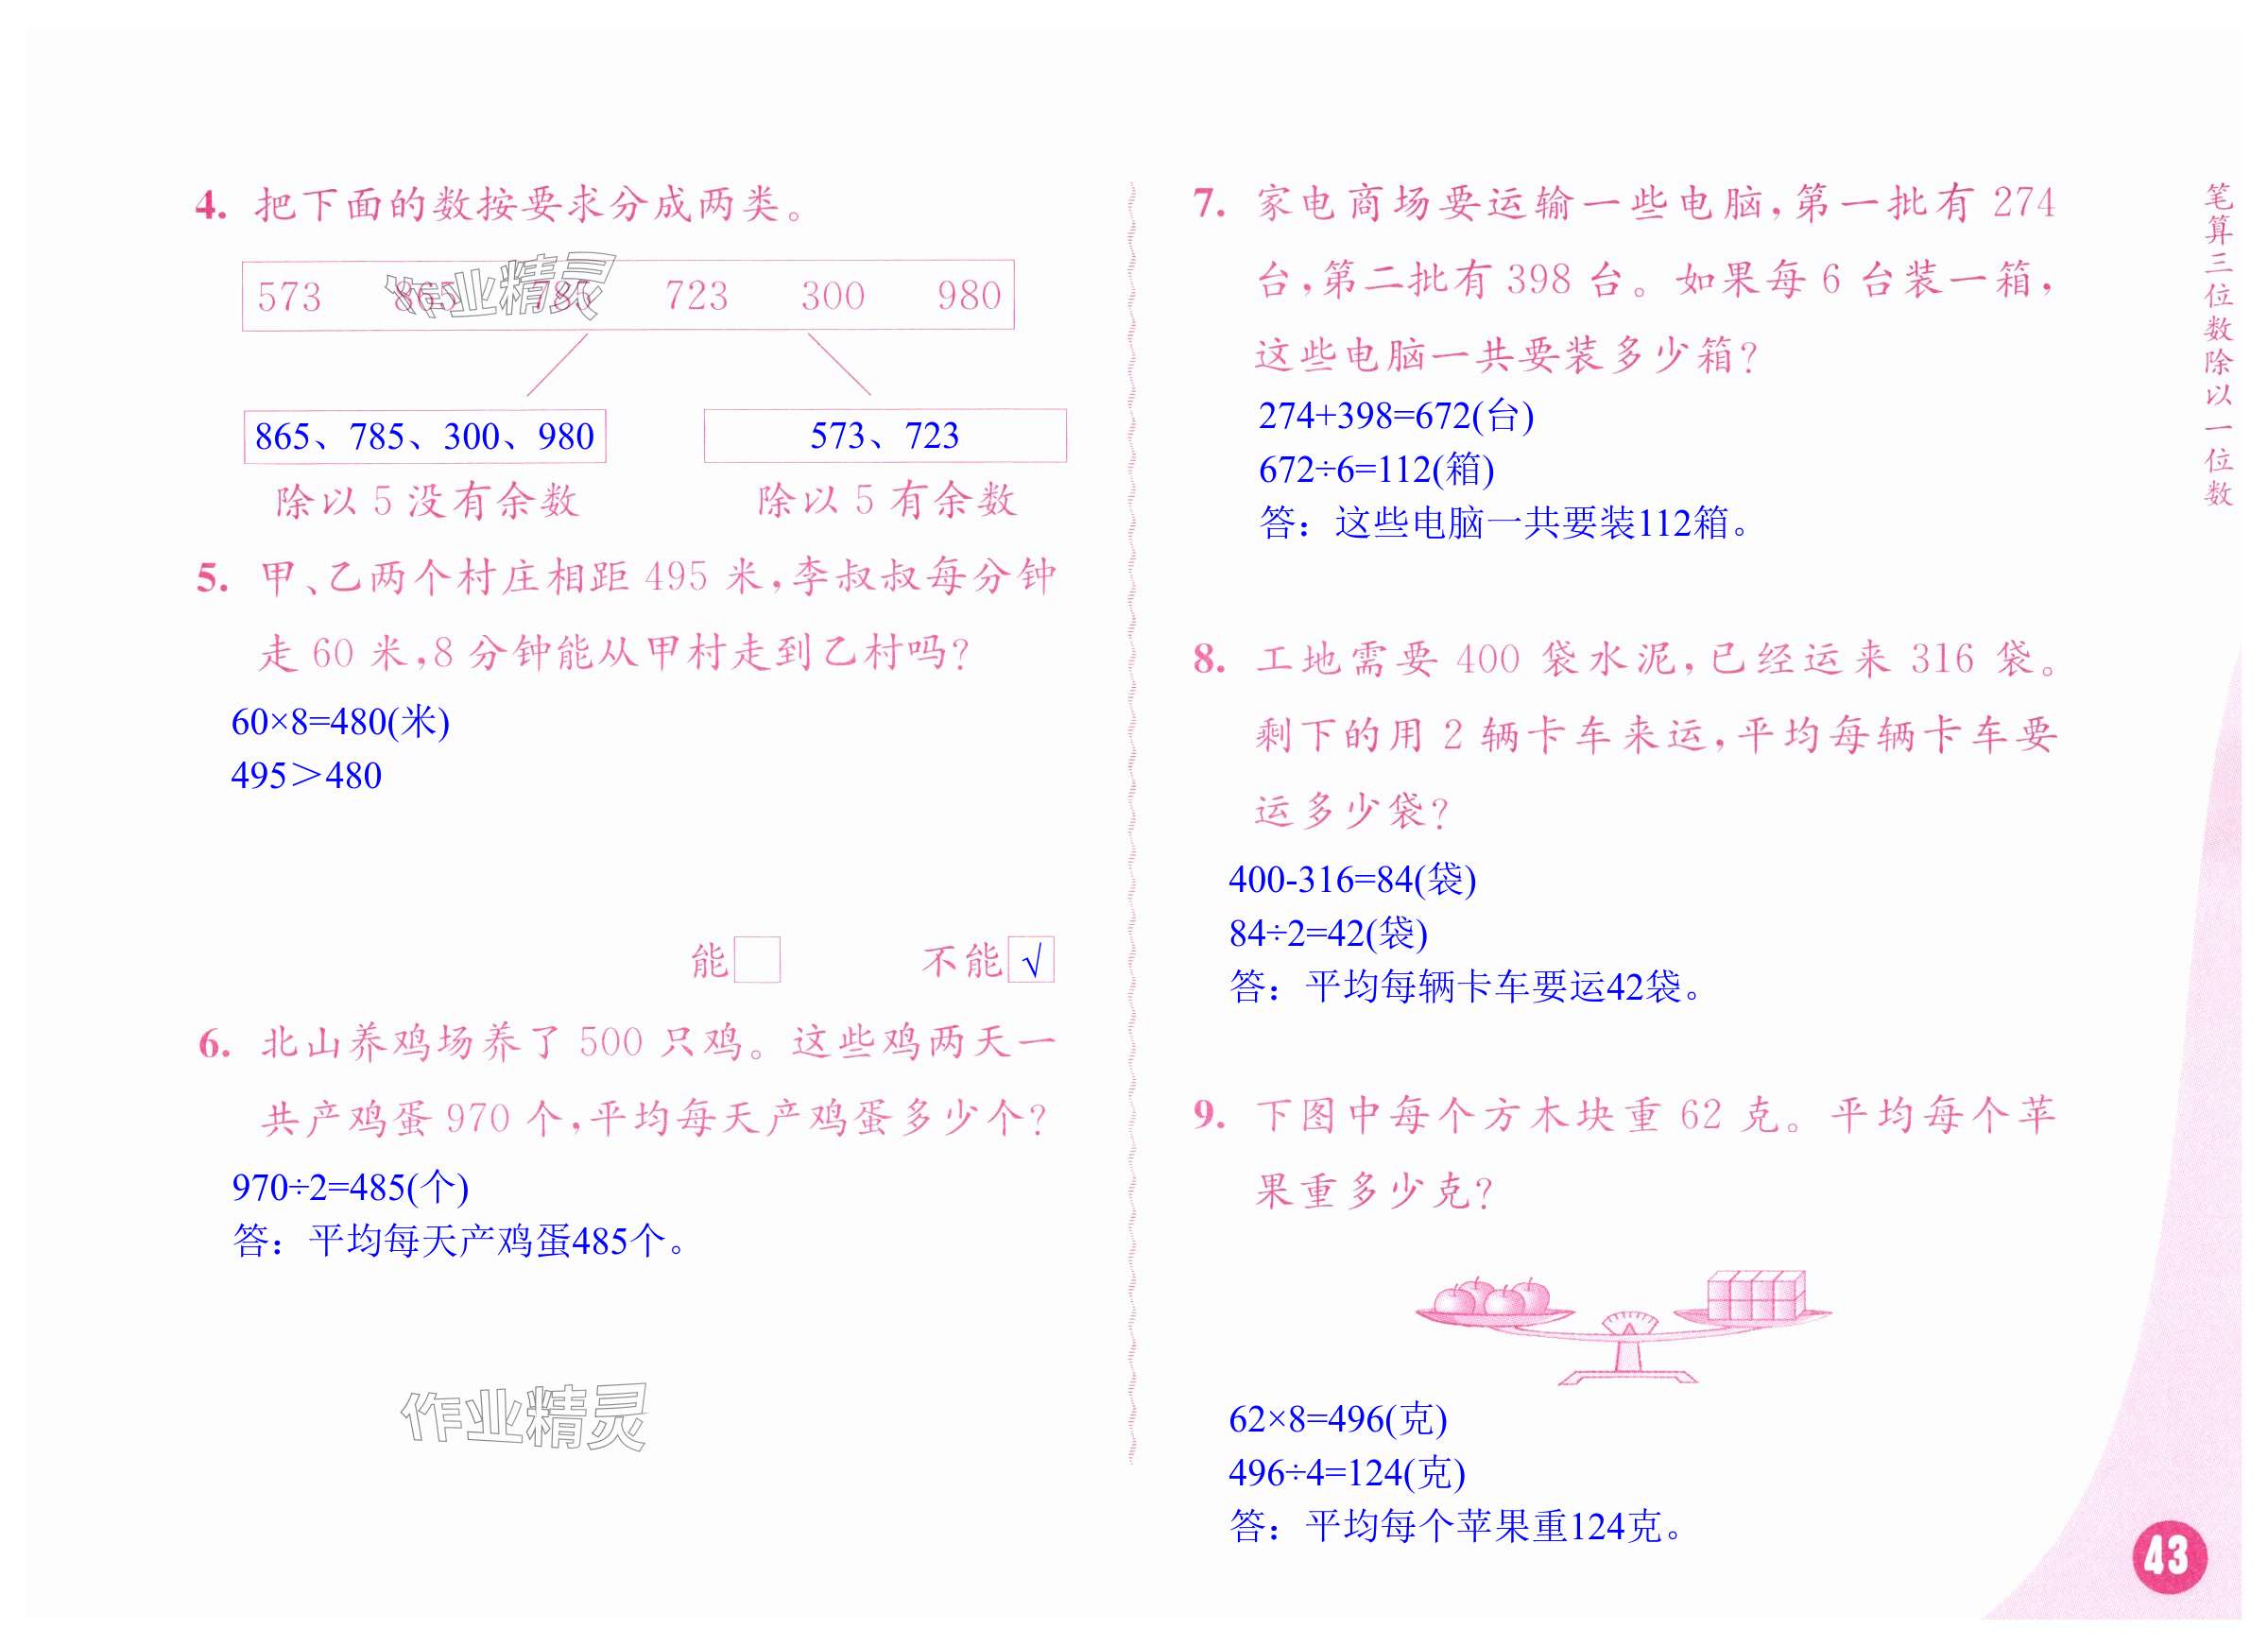 4. 把下面的数按要求分成两类。
573 865 785 723 300 980
作业精灵
865、785、300、980 573、723
除以 5 没有余数 除以 5 有余数
5. 甲、乙两个村庄相距 495 米,李叔叔每分钟
走 60 米,8 分钟能从甲村走到乙村吗?
60×8=480(米)
495＞480
能 不能 √
6. 北山养鸡场养了 500 只鸡。这些鸡两天一
共产鸡蛋 970 个,平均每天产鸡蛋多少个?
970÷2=485(个)
答：平均每天产鸡蛋485个。
作业精灵
7. 家电商场要运输一些电脑,第一批有 274
台,第二批有 398 台。如果每 6 台装一箱,
这些电脑一共要装多少箱?
274+398=672(台)
672÷6=112(箱)
答：这些电脑一共要装112箱。
8. 工地需要 400 袋水泥,已经运来 316 袋。
剩下的用 2 辆卡车来运,平均每辆卡车要
运多少袋?
400-316=84(袋)
84÷2=42(袋)
答：平均每辆卡车要运42袋。
9. 下图中每个方木块重 62 克。平均每个苹
果重多少克?
62×8=496(克)
496÷4=124(克)
答：平均每个苹果重124克。
笔算三位数除以一位数
43